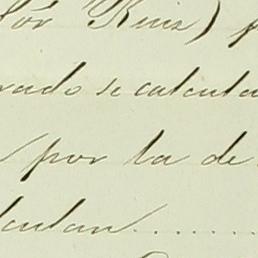 por Ruiz) p
rado se calcula
por la de
culan........